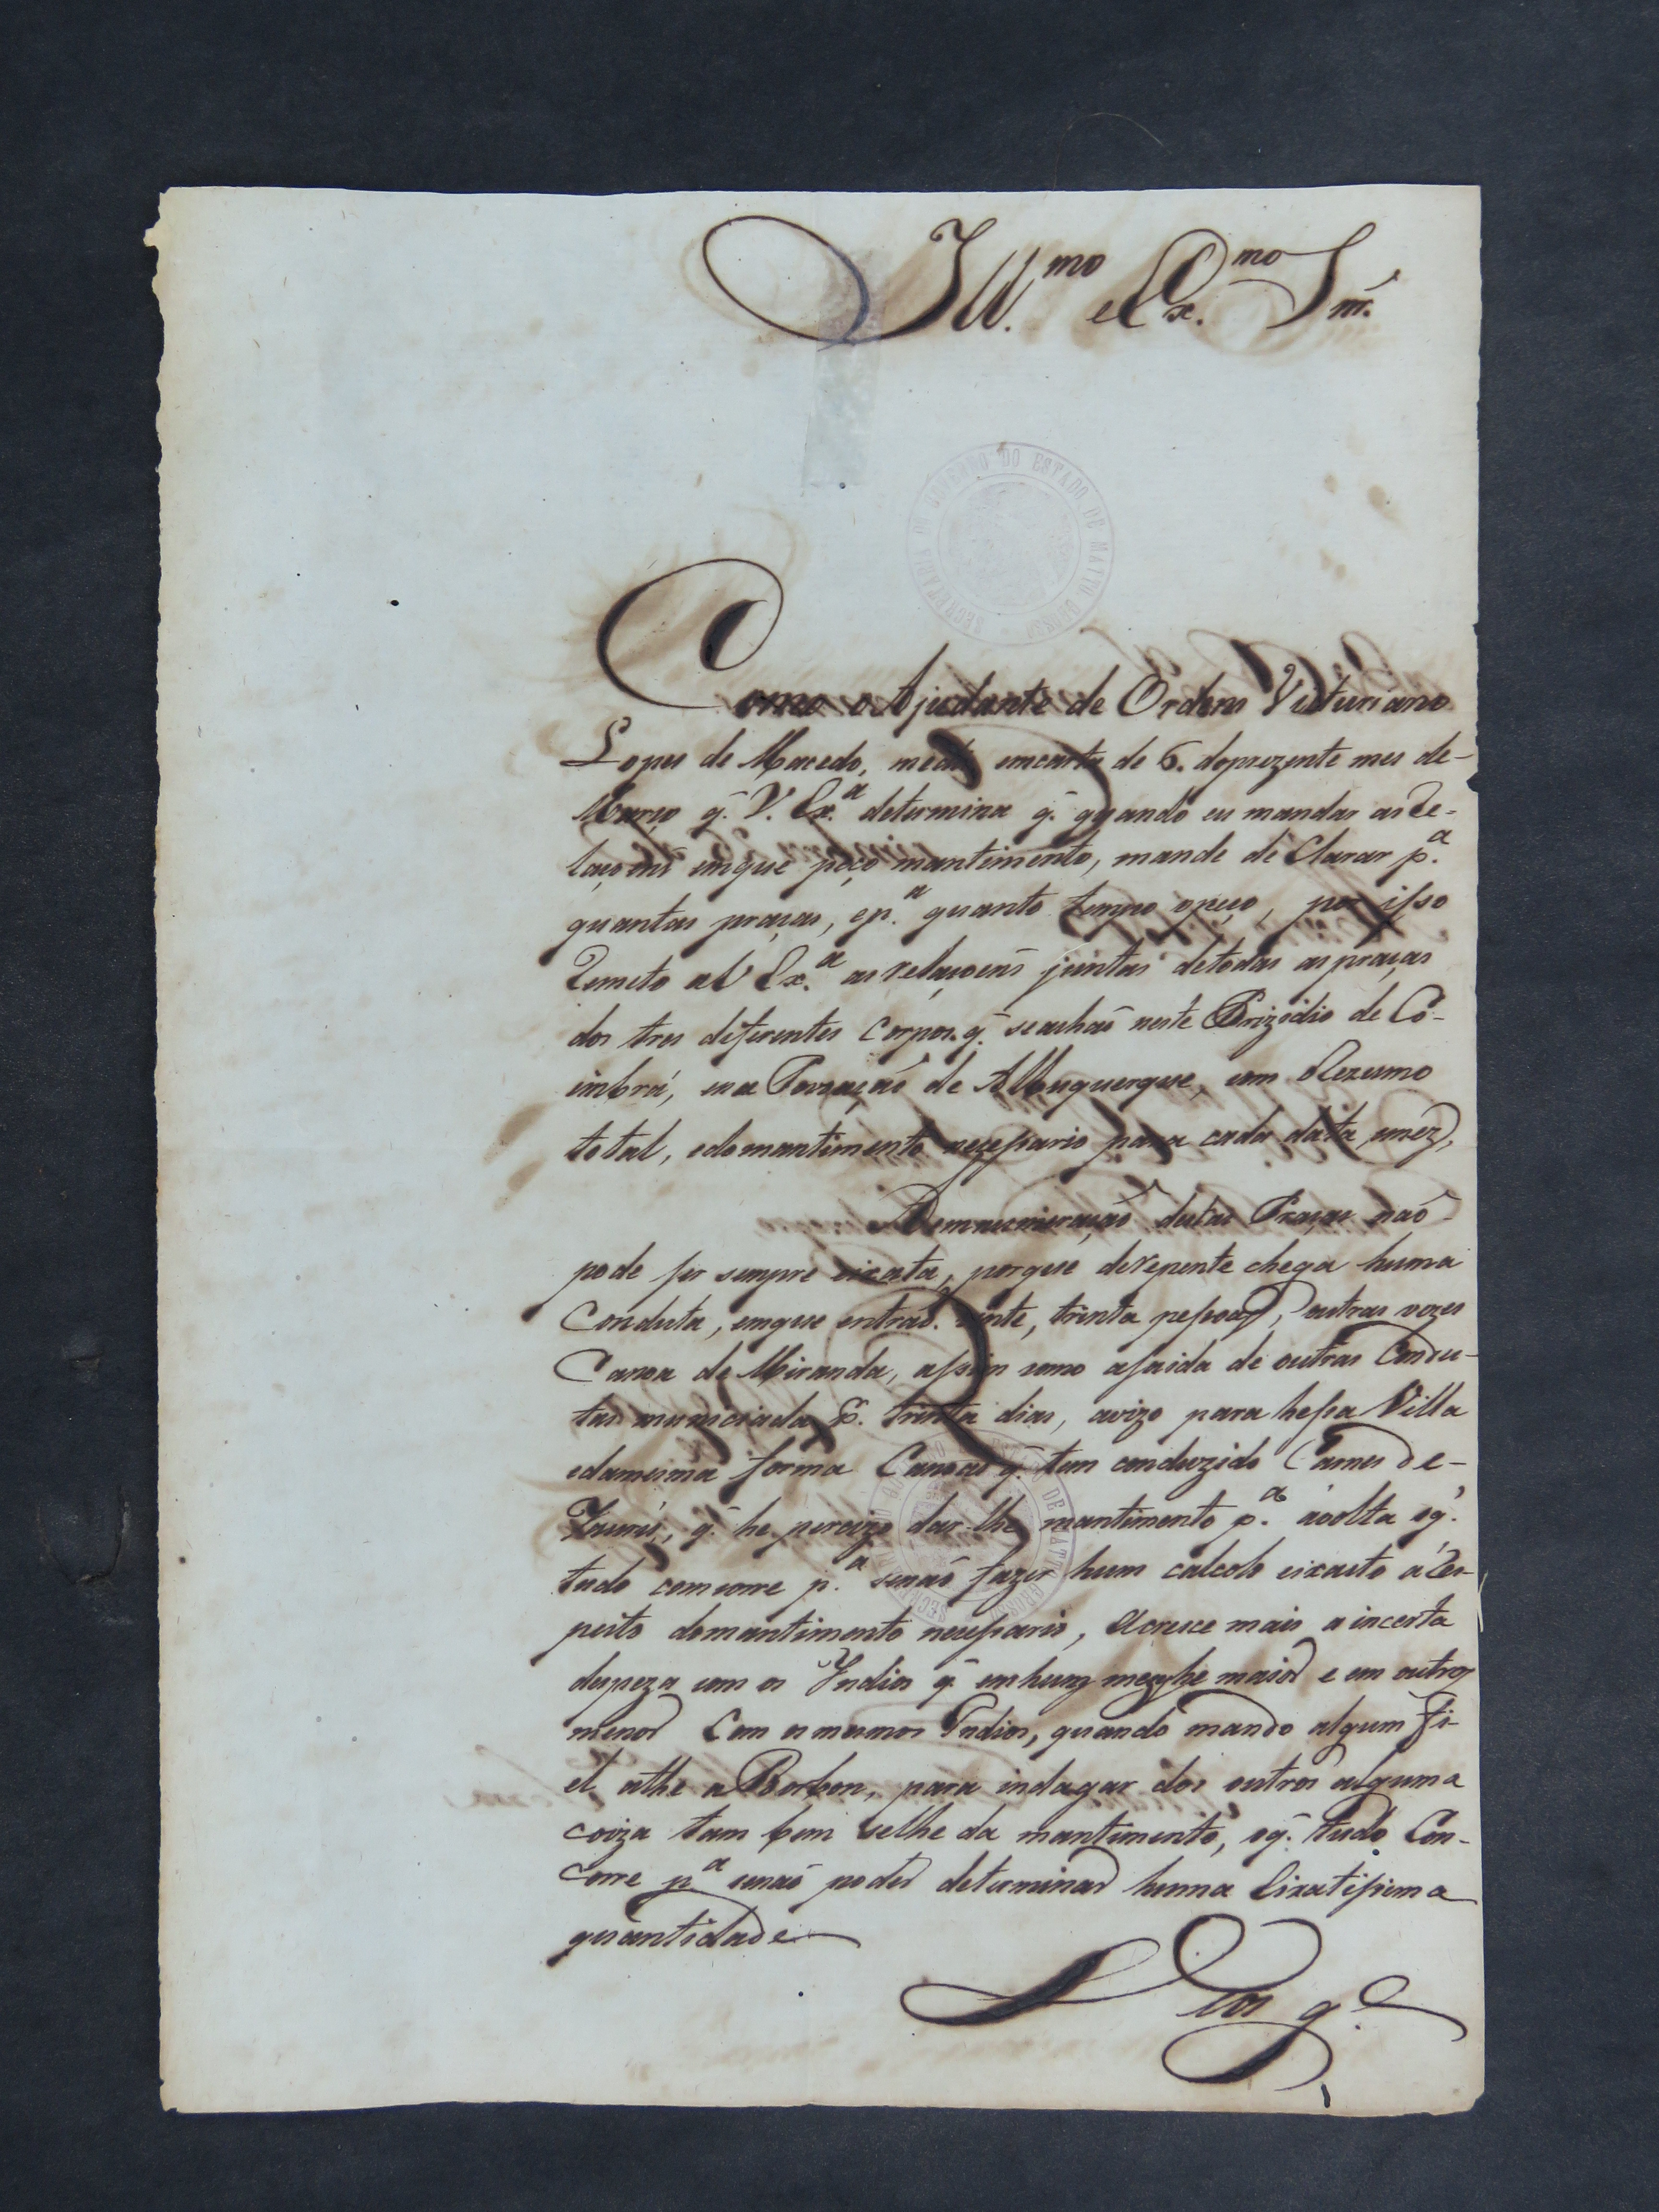 Ill.mo e Ex.mo Snr.
SECRETARIA DO GOVERNO DO ESTADO DE MATTO GROSSO
Como o Ajudante de Ordens Victuriano
Lopes de Macedo, me diz em carta de 6. do prezente mes de-
Março q̃. V. Ex.a determina q̃. quando eu mandar as Re-
laçoens em que peço mantimento, mande de Clarar p.a
quantas praças, e p.a quanto tempo o peço, por isso
Remeto a V Ex.a as relaçoens juntas de todas as praças
dos tres diferentes Corpos. q̃. se achaõ neste Prizidio de Co-
imbra, e na Povoaçaõ de Albuquerque, com o Rezumo
total, e do mantimento necessario para cada data em
A emnumeraçaõ destas Praças naõ-
pode ser sempre eixata, porque derepente chega huma
Conduta, em que entraõ. vinte, trinta pessoas, outras vezes
Canoa de Miranda, assim como a saida de outras Condu-
tas municiadas p. trinta dias, avizo para hessa Villa
e da mesma forma Canoas q̃. tem conduzido Carnes de-
q̃. he percizo dar-lhe mantimento p.a a volta o q̃.
tudo comcorre p.a senaõ fazer hum calcolo eixacto a Res-
peito do mantimento necessario, Acresce mais a incerta
despeza com os Yndios q̃. em hum mez he maior e em outros
menor Com os mesmos Indios, quando mando algum fi-
el athe a Borbon, para indagar dos outros alguma
coiza tam bem selhe da mantimento, o q̃. tudo Con-
corre p.a senaõ poder determinar huma Eixatissima
quantidade
Deos g.e